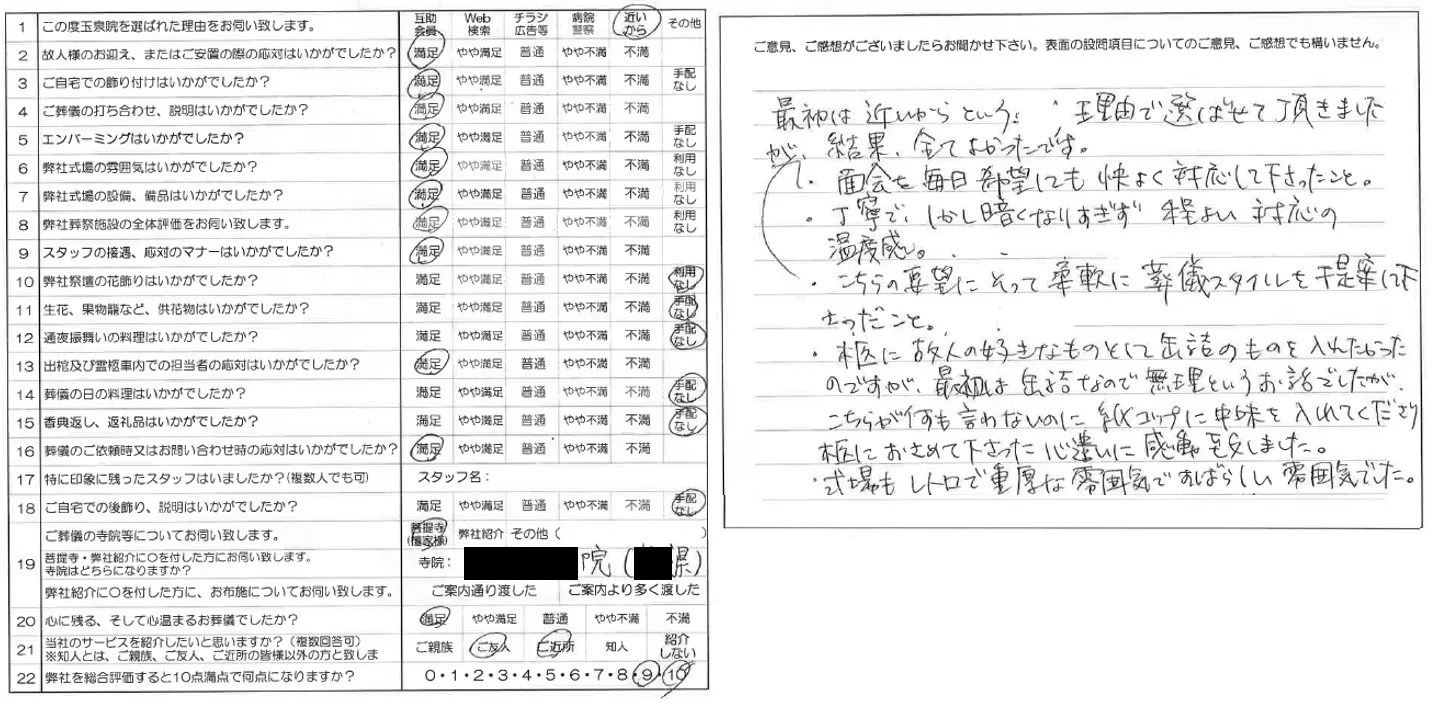 1 この度玉泉院を選ばれた理由をお伺い致します。 互助会員 Web検索 チラシ広告等 病院警察 近いから その他
2 故人様のお迎え、またはご安置の際の応対はいかがでしたか? 満足 やや満足 普通 やや不満 不満
3 ご自宅での飾り付けはいかがでしたか? 満足 やや満足 普通 やや不満 不満 手配なし
4 ご葬儀の打ち合わせ、説明はいかがでしたか? 満足 やや満足 普通 やや不満 不満
5 エンバーミングはいかがでしたか? 満足 やや満足 普通 やや不満 不満 手配なし
6 弊社式場の雰囲気はいかがでしたか? 満足 やや満足 普通 やや不満 不満 利用なし
7 弊社式場の設備、備品はいかがでしたか? 満足 やや満足 普通 やや不満 不満 利用なし
8 弊社葬祭施設の全体評価をお伺い致します。 満足 やや満足 普通 やや不満 不満 利用なし
9 スタッフの接遇、応対のマナーはいかがでしたか? 満足 やや満足 普通 やや不満 不満
10 弊社祭壇の花飾りはいかがでしたか? 満足 やや満足 普通 やや不満 不満 利用なし
11 生花、果物籠など、供花物はいかがでしたか? 満足 やや満足 普通 やや不満 不満 手配なし
12 通夜振舞いの料理はいかがでしたか? 満足 やや満足 普通 やや不満 不満 手配なし
13 出棺及び霊柩車内での担当者の応対はいかがでしたか? 満足 やや満足 普通 やや不満 不満
14 葬儀の日の料理はいかがでしたか? 満足 やや満足 普通 やや不満 不満 手配なし
15 香典返し、返礼品はいかがでしたか? 満足 やや満足 普通 やや不満 不満 手配なし
16 葬儀のご依頼時又はお問い合わせ時の応対はいかがでしたか? 満足 やや満足 普通 やや不満 不満
17 特に印象に残ったスタッフはいましたか?(複数人でも可) スタッフ名:
18 ご自宅での後飾り、説明はいかがでしたか? 満足 やや満足 普通 やや不満 不満 手配なし
19 ご葬儀の寺院等についてお伺い致します。 菩提寺(檀家様) 弊社紹介 その他( )
菩提寺・弊社紹介に○を付した方にお伺い致します。
寺院はどちらになりますか? 寺院: 院(県)
弊社紹介に○を付した方に、お布施についてお伺い致します。 ご案内通り渡した ご案内より多く渡した
20 心に残る、そして心温まるお葬儀でしたか? 満足 やや満足 普通 やや不満 不満
21 当社のサービスを紹介したいと思いますか?(複数回答可) ご親族 ご友人 ご近所 知人 紹介しない
※知人とは、ご親族、ご友人、ご近所の皆様以外の方と致しま
22 弊社を総合評価すると10点満点で何点になりますか? 0・1・2・3・4・5・6・7・8・9・10
ご意見、ご感想がございましたらお聞かせ下さい。表面の設問項目についてのご意見、ご感想でも構いません。
最初は近いからという 理由で選ばせて頂きました
が、結果、全てよかったです。
・面会を毎日希望しても快よく対応して下さったこと。
・丁寧で、しかし暗くなりすぎず 程よい対応の
温度感。
・こちらの要望にそって柔軟に葬儀スタイルを提案して下
さったこと。
・柩に故人の好きなものとして缶詰のものを入れたかった
のですが、最初は缶詰なので無理というお話でしたが、
こちらが何も言わないのに紙コップに中味を入れてくださり
柩におさめて下さった心遣いに感動致しました。
・式場もレトロで重厚な雰囲気ですばらしい雰囲気でした。